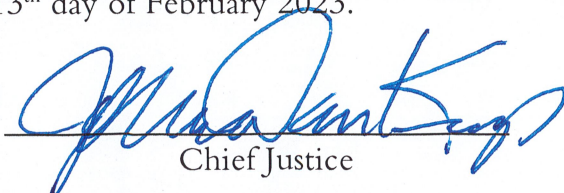 13th day of February 2023.
Chief Justice